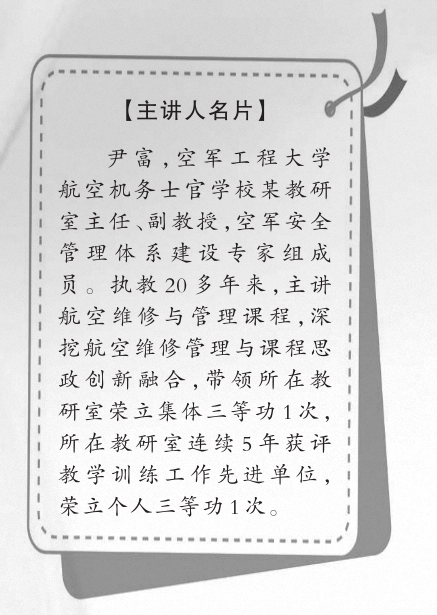 【主讲人名片】
尹富,空军工程大学
航空机务士官学校某教研
室主任、副教授,空军安全
管理体系建设专家组成
员。执教20多年来,主讲
航空维修与管理课程,深
挖航空维修管理与课程思
政创新融合,带领所在教
研室荣立集体三等功1次,
所在教研室连续5年获评
教学训练工作先进单位,
荣立个人三等功1次。